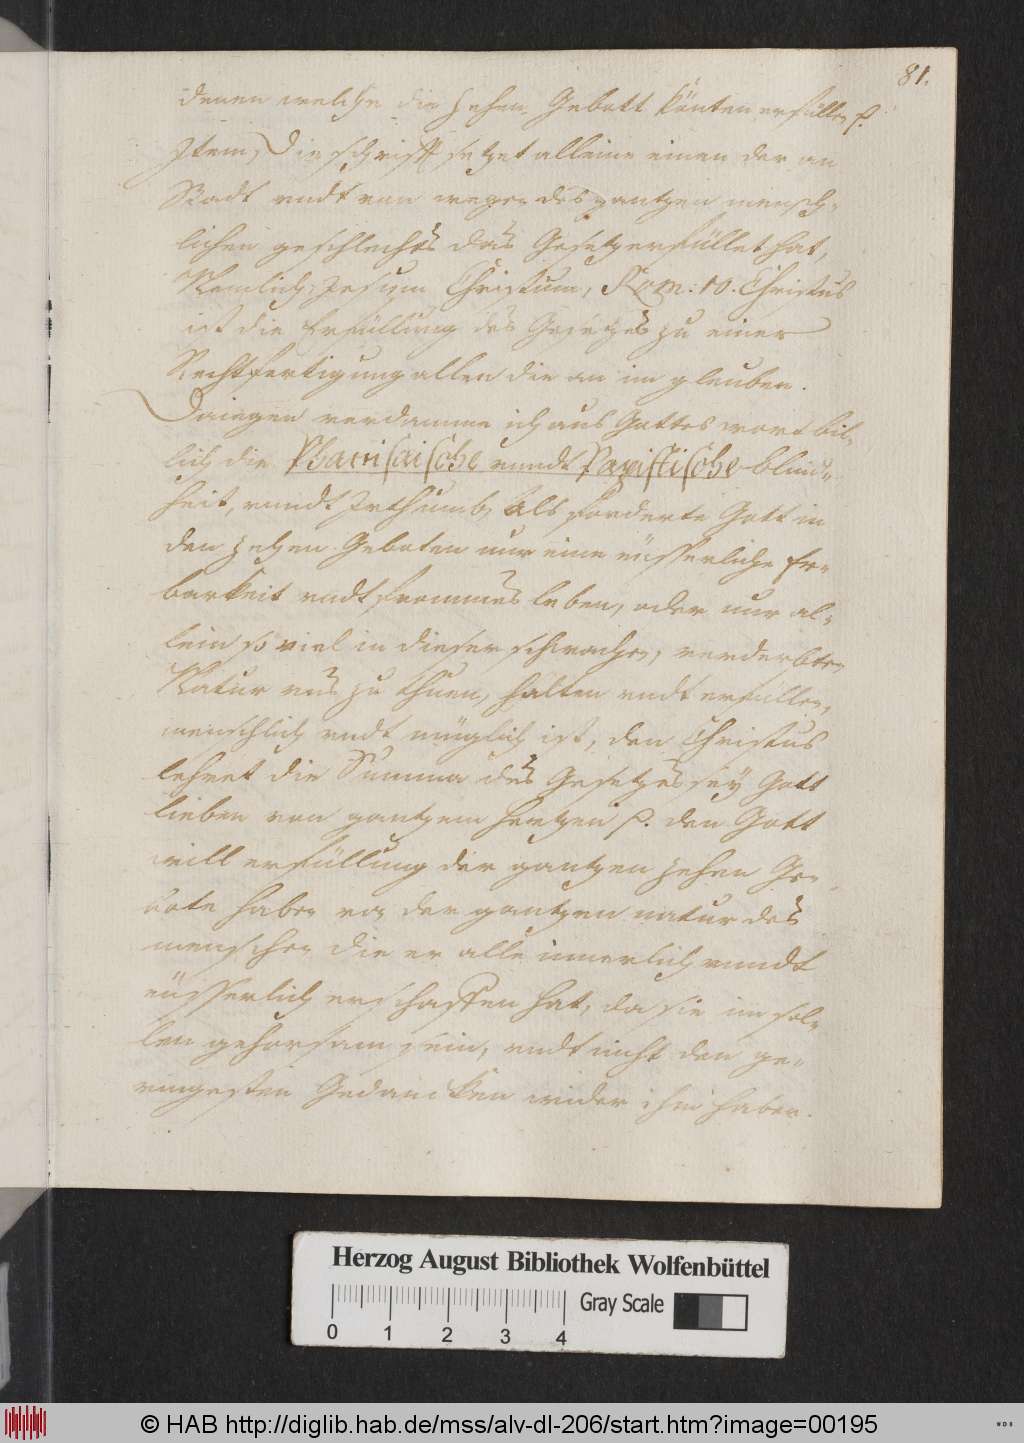 81.
denen welche die zehen Gebott könten erfüllen p.
Item, Die schrifft setzet alleine einen der an
Stadt vndt von wegen des gantzen mensch-
lichen geschlechts das Gesetz erfüllet hat,
Nemlich: Jesum Christum, Rom: 10. Christus
ist die Erfüllung des Gesetzes zu einer
Rechtfertigung allen die an im glauben.
Daiegen verdamme ich aus Gottes wort bil-
lich die Pharisaische vnndt Papistische blind-
heit, vnndt Irthumb, Als forderte Gott in
den zehen Geboten nur eine eüsserliche Er-
barkeit vndt frommes leben, oder nur al-
lein so viel in dieser schwachen, verderbten
Natur vns zu thuen, halten vndt erfüllen,
menschlich vndt müglich ist, den Christus
lehret die Summa des Gesetzes sey Gott
lieben von gantzem hertzen p. den Gott
will erfüllung der gantzen zehen Ge-
bote haben von der gantzen natur des
menschen die er alle innerlich vnndt
eüsserlich erschaffen hat, da sie im sol-
len gehorsam sein, vndt nicht den ge-
ringesten Gedancken wider ihn haben.
Herzog August Bibliothek Wolfenbüttel
Gray Scale
0 1 2 3 4
© HAB http://diglib.hab.de/mss/alv-dl-206/start.htm?image=00195
WDB